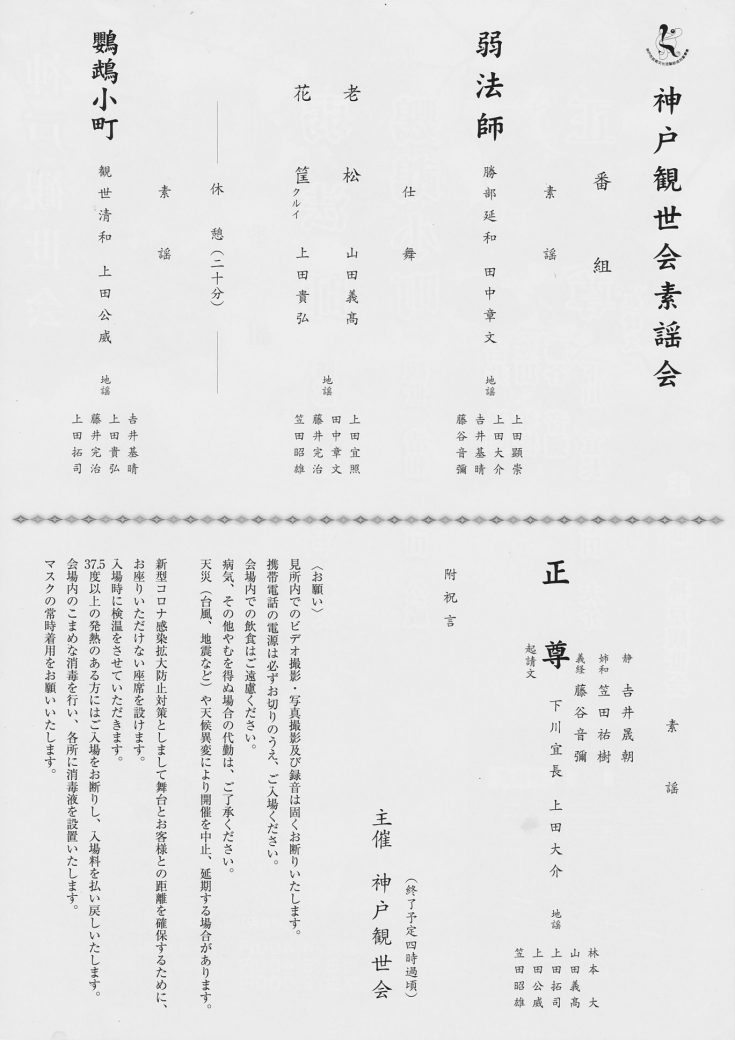 神戸観世会素謡会
番組
素謡
弱法師
勝部延和 田中章文
地謡
上田顕崇
上田大介
𠮷井基晴
藤谷音彌
仕舞
老松 山田義高
花筐 クルイ 上田貴弘
地謡
上田宜照
田中章文
藤井完治
笠田昭雄
休憩(二十分)
素謡
鸚鵡小町
観世清和 上田公威
地謡
𠮷井基晴
上田貴弘
藤井完治
上田拓司
素謡
静 𠮷井晟朝
姉和 笠田祐樹
義経 藤谷音彌
正尊
起請文
下川宜長 上田大介
地謡
林本大
山田義高
上田拓司
上田公威
笠田昭雄
附祝言
(終了予定四時過頃)
主催 神戸観世会
〈お願い〉
見所内でのビデオ撮影・写真撮影及び録音は固くお断りいたします。
携帯電話の電源は必ずお切りのうえ、ご入場ください。
会場内での飲食はご遠慮ください。
病気、その他やむを得ぬ場合の代勤は、ご了承ください。
天災(台風、地震など)や天候異変により開催を中止、延期する場合があります。
新型コロナ感染拡大防止対策としまして舞台とお客様との距離を確保するために、
お座りいただけない座席を設けます。
入場時に検温をさせていただきます。
37.5度以上の発熱のある方にはご入場をお断りし、入場料を払い戻しいたします。
会場内のこまめな消毒を行い、各所に消毒液を設置いたします。
マスクの常時着用をお願いいたします。